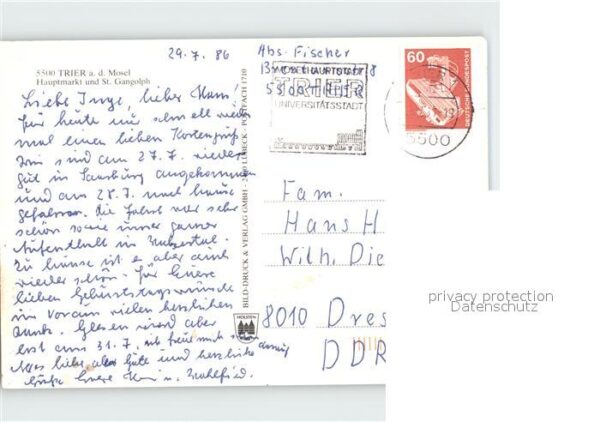 29.7.86
Abs. Fischer
5500 TRIER a. d. Mosel
Hauptmarkt und St. Gangolph
TRIER
UNIVERSITÄTSSTADT
60
DEUTSCHE BUNDESPOST
5500
Liebe Inge, lieber Hans!
Für heute nur schnell wieder
mal einen lieben Kartengruß
sind am 27.7. wieder
gut in Saarburg angekommen
und am 28.7. nach Hause
gefahren. Die Fahrt war sehr
schön sowie unser ganzer
Aufenthalt in
Zu Hause ist es aber auch
wieder schön. Für Euere
lieben Geburtstagswünsche
im Voraus vielen herzlichen
Dank. wird aber
erst am 31.7. ich freue mich schon darauf
Alles Liebe, alles Gute und herzliche
Grüße Euere
BILD-DRUCK & VERLAG GMBH · 2400 LÜBECK · POSTFACH 1710
HOLSTEN
Fam.
Hans H
Wilh. Die
8010 Dres
DDR
privacy protection
Datenschutz